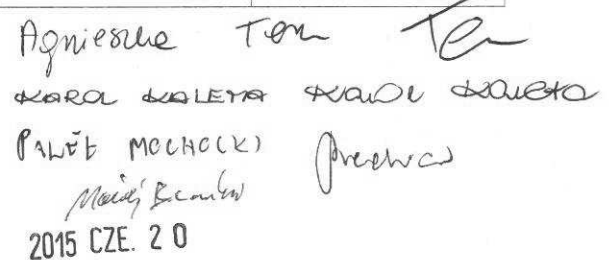 Agnieszka Ten Ten
KAROL KALETA Karol Kaleta
PAWEŁ MOCHOCKI
Maciej
2015 CZE. 20